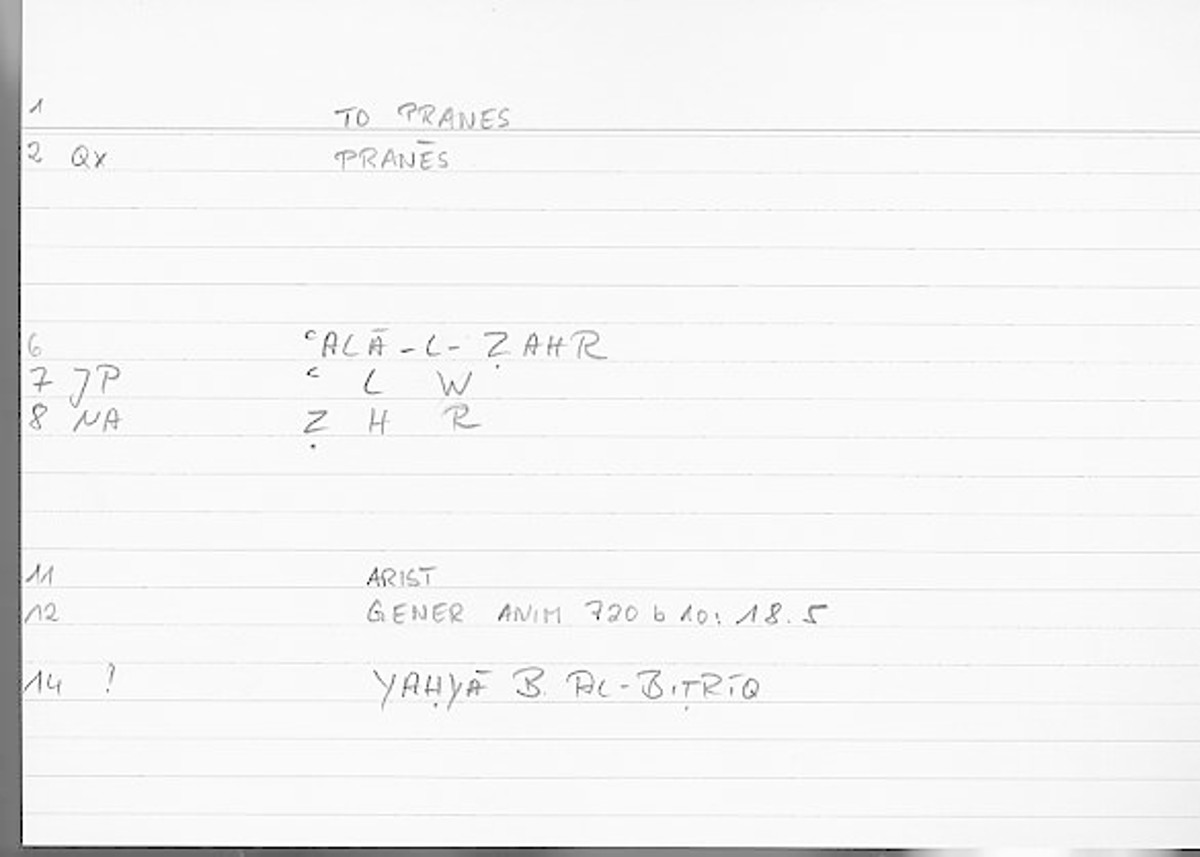 1 TO PRANES
2 Qx PRANĒS
6 ʿALĀ-L-ẒAHR
7 JP ʿ L W
8 NA Ẓ H R
11 ARIST
12 GENER ANIM 720 b 10: 18.5
14 ! YAḤYĀ B. AL-BIṬRĪQ